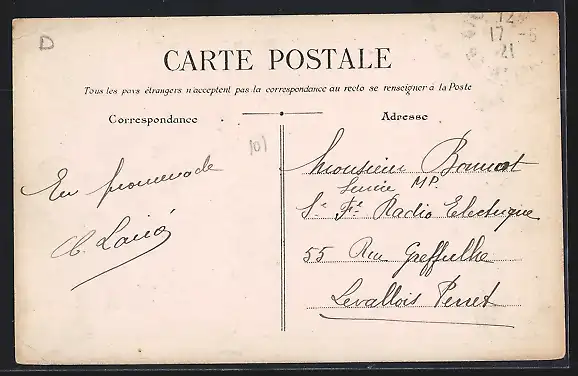 D
14
17 - 5
21
CARTE POSTALE
Tous les pays étrangers n'acceptent pas la correspondance au recto se renseigner à la Poste
Correspondance
Adresse
101
En promenade
Monsieur
Service MP.
Sté Fse Radio Electrique
55 Rue Greffulhe
Levallois Perret